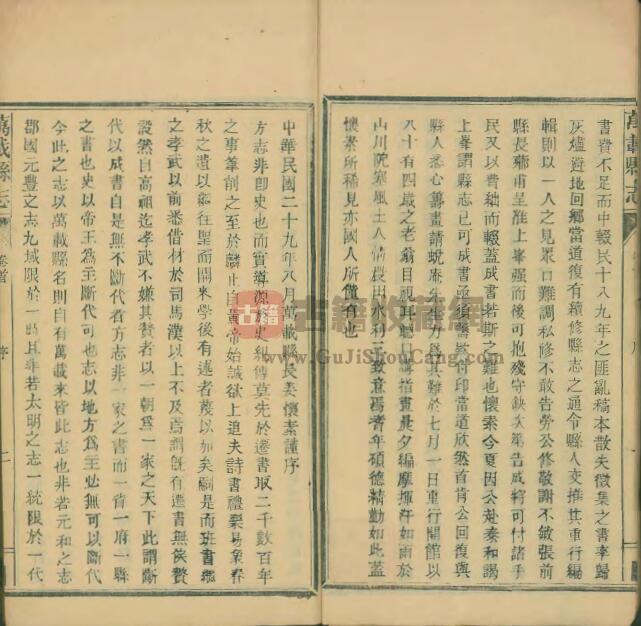 萬載縣志
書費不足而中輟民十八九年之匪亂稿本散失徵集之書率歸
灰燼避地回鄉當道復有續修縣志之通令縣人交推其重行編
輯則以一人之見眾口難調私修不敢告勞公修敬謝不敏張前
縣長薌甫呈准上峯强而後可抱殘守缺次第告成輯可付諸手
民又以費絀而輟蓋成書若斯之難也懷素今夏因公赴泰和謁
上峯謂縣志已可成書亟須籌欵付印當道欣然首肯公回復與
縣人悉心籌畫請蛻庵先生力爲其難於七月一日重行開館以
八十有四歲之老翁目覩耳聽口講指畫晨夕編摩揮汗如雨於
山川阨塞風土人情農田水利三致意焉耆年碩德精勤如此蓋
懷素所稀見亦國人所僅有也
中華民國二十九年八月萬載縣長姜懷素謹序
方志非卽史也而實導源於史紀傳莫先於遷書取二千數百年
之事筆削之至於麟止自黃帝始誠欲上追夫詩書禮樂易象春
秋之遺以繼往聖而開來學後有述者蔑以加矣嗣是而班書繼
之孝武以前悉借材於司馬漢以上不及焉謂旣有遷書無俟贅
設然自高祖迄孝武不嫌其贅者以一朝爲一家之天下此謂斷
代以成書自是無不斷代者方志非一家之書而一省一府一縣
之書也史以帝王爲主斷代可也志以地方爲主必無可以斷代
今此之志以萬載縣名則自有萬載來皆此志也非若元和之志
郡國元豐之志九域限於一時且非若太明之志一統限於一代
萬載縣志
卷首
序
二
古籍
古籍收藏網
www.GuJiShouCang.com